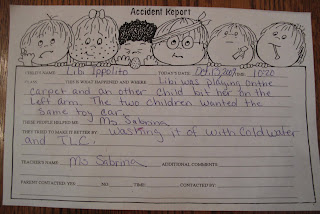 Accident Report
CHILD'S NAME Libi Ippolito TODAY'S DATE Oct. 13, 2009 10:20
THIS IS WHAT HAPPENED AND WHERE Libi was playing on the
carpet and an other child bit her on the
left arm. The two children wanted the
same toy car.
THESE PEOPLE HELPED ME Ms Sabrina
THEY TRIED TO MAKE IT BETTER BY washing it of with Cold water
and T.L.C.
TEACHER'S NAME Ms Sabrina ADDITIONAL COMMENTS
PARENT CONTACTED YES NO TIME CONTACTED BY